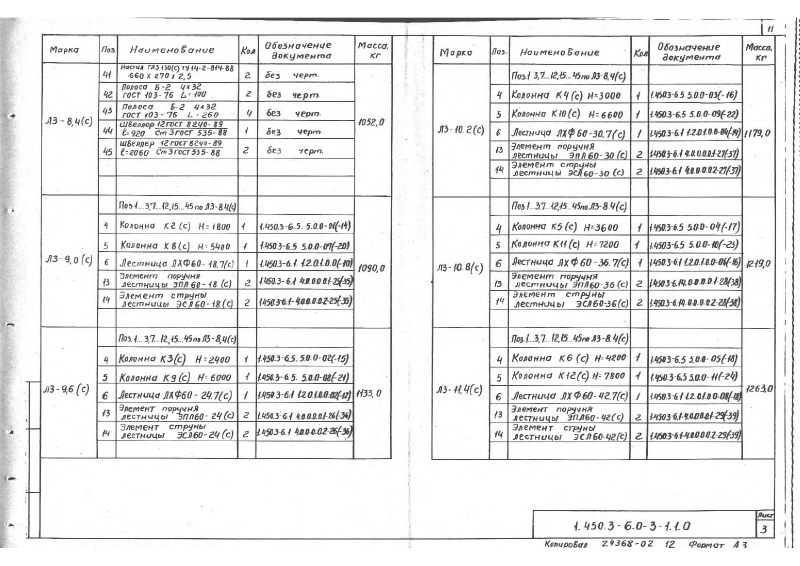 11
Марка Поз. Наименование Кол Обозначение документа Масса, кг
ЛЗ-8,4(с) 1052,0
41 Настил ГЛЗ 150(с) ТУ 14-2-814-88 660 х 270 х 2,5 2 без черт.
42 Полоса Б-2 4х32 ГОСТ 103-76 L=100 2 без черт.
43 Полоса Б-2 4х32 ГОСТ 103-76 L=260 4 без черт.
44 Швеллер 12 ГОСТ 8240-89 ℓ=920 Ст3 ГОСТ 535-88 1 без черт.
45 Швеллер 12 ГОСТ 8240-89 ℓ=2060 Ст3 ГОСТ 535-88 2 без черт.
ЛЗ-9,0(с) 1090,0
Поз.1...3,7...12,15...45 по ЛЗ-8,4(с)
4 Колонна К2(с) Н=1800 1 1.450.3-6.5.5.0.0-01(-14)
5 Колонна К8(с) Н=5400 1 1.450.3-6.5 5.0.0-07(-20)
6 Лестница ЛХФ60-18,7(с) 1 1.450.3-6.1 1.2.0.1.0.0(-10)
13 Элемент поручня лестницы ЭПЛ60-18(с) 2 1.450.3-6.1 4.0.0.0.1-25(35)
14 Элемент струны лестницы ЭСЛ60-18(с) 2 1.450.3-6.1-4.0.0.0.2-25(-35)
ЛЗ-9,6(с) 1133,0
Поз.1...3,7...12,15...45 по ЛЗ-8,4(с)
4 Колонна К3(с) Н=2400 1 1.450.3-6.5.5.0.0-02(-15)
5 Колонна К9(с) Н=6000 1 1.450.3-6.5.5.0.0-08(-21)
6 Лестница ЛХФ60-24.7(с) 1 1.450.3-6.1 1.2.0.1.0.0-02(-12)
13 Элемент поручня лестницы ЭПЛ60-24(с) 2 1.450.3-6.1 4.0.0.0.1-26(-36)
14 Элемент струны лестницы ЭСЛ60-24(с) 2 1.450.3-6.1-4.0.0.0.2-26(-36)
Марка Поз. Наименование Кол Обозначение документа Масса, кг
ЛЗ-10.2(с) 1179,0
Поз.1 3,7...12,15...45 по ЛЗ-8,4(с)
4 Колонна К4(с) Н=3000 1 1.450.3-6.5 5.0.0-03(-16)
5 Колонна К10(с) Н=6600 1 1.450.3-6.5 5.0.0-09(-22)
6 Лестница ЛХФ60-30.7(с) 1 1.450.3-6.1 1.2.0.1.0.0-04(-14)
13 Элемент поручня лестницы ЭПЛ60-30(с) 2 1.450.3-6.1 4.0.0.0.1-27(37)
14 Элемент струны лестницы ЭСЛ60-30(с) 2 1.450.3-6.1 4.0.0.0.2-27(37)
ЛЗ-10.8(с) 1219,0
Поз.1...3,7...12,15...45 по ЛЗ-8.4(с)
4 Колонна К5(с) Н=3600 1 1.450.3-6.5 5.0.0-04(-17)
5 Колонна К11(с) Н=7200 1 1.450.3-6.5 5.0.0-10(-23)
6 Лестница ЛХФ60-36.7(с) 1 1.450.3-6.1 1.2.0.1.0.0-06(-16)
13 Элемент поручня лестницы ЭПЛ60-36(с) 2 1.450.3-6.1 4.0.0.0.1-28(38)
14 Элемент струны лестницы ЭСЛ60-36(с) 2 1.450.3-6.1 4.0.0.0.2-28(38)
ЛЗ-11,4(с) 1263,0
Поз.1...3,7...12,15...45 по ЛЗ-8.4(с)
4 Колонна К6(с) Н=4200 1 1.450.3-6.5 5.0.0-05(-18)
5 Колонна К12(с) Н=7800 1 1.450.3-6.5 5.0.0-11(-24)
6 Лестница ЛХФ60-42,7(с) 1 1.450.3-6.1 1.2.0.1.0.0-08(-18)
13 Элемент поручня лестницы ЭПЛ60-42(с) 2 1.450.3-6.1 4.0.0.0.1-29(-39)
14 Элемент струны лестницы ЭСЛ60-42(с) 2 1.450.3-6.1-4.0.0.0.2-29(-39)
1.450.3-6.0-3-1.1.0
Лист
3
Копировал 24368-02 12 Формат А3